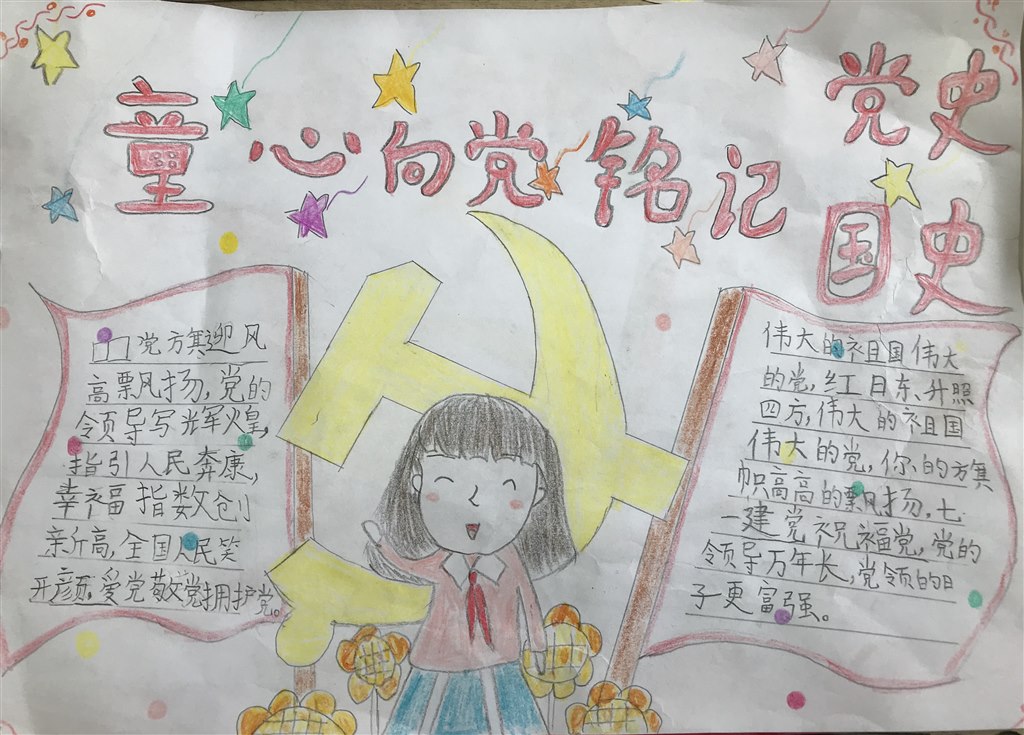 童心向党铭记
党史
国史
党方旗迎风
高飘风扬,党的
令领导写光辉火皇,
指引人民奔康,
幸福指数创
新高,全国人民笑
开颜,爱党敬党拥护党。
伟大的祖国伟大
的党,红日东升照
四方,伟大的祖国
伟大的党,你的旗
帜高高的飘扬,七
一建党祝福党,党的
领导万年长,党领的日
子更富强。